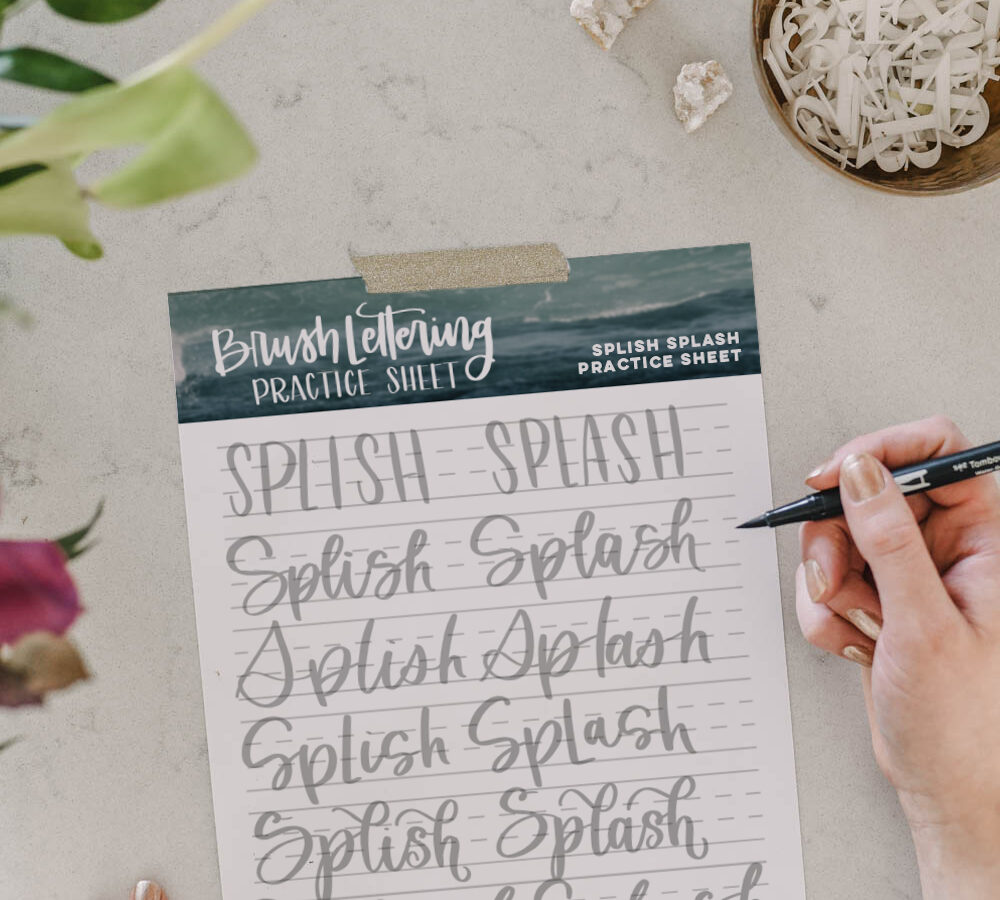 Brush Lettering
PRACTICE SHEET
SPLISH SPLASH
PRACTICE SHEET
SPLISH SPLASH
Splish Splash
Splish Splash
Splish Splash
Splish Splash
Splash